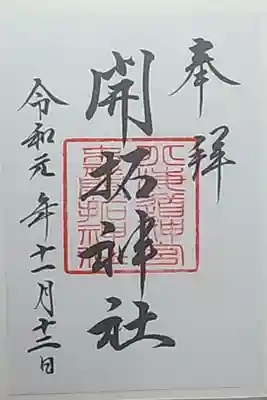 奉拝
開拓神社
北海道神宮
末社開拓神社
令和元年十一月十三日